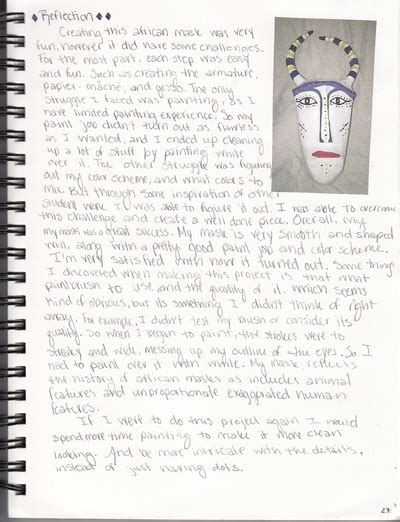 Reflection
Creating this african mask was very
fun, however it did have some challenges.
For the most part, each step was easy
and fun. Such as creating the armature,
papier-mache, and gesso. The only
struggle I faced was painting, as I
have limited painting experience. So my
paint job didn't turn out as flawless
as I wanted, and I ended up cleaning
up a lot of stuff by painting white
over it. The other struggle was figuring
out my color scheme, and what colors to
mix. But through some inspiration of other
students work I was able to figure it out. I was able to overcome
this challenge and create a well done piece. Overall, my
my mask was a great success. My mask is very smooth and shaped
well, along with a pretty good paint job and color scheme.
I'm very satisfied with how it turned out. Some things
I discovered when making this project is that what
paintbrush to use, and the quality of it. Which seems
kind of obvious, but its something I didn't think of right
away. For example, I didn't test my brush or consider its
quality. So when I began to paint, the strokes were to
streaky and wide, messing up my outline of the eyes. So I
had to paint over it with white. My mask reflects
the history of african masks as includes animal
features and unproportionate exaggerated human
features.
If I were to do this project again I would
spend more time painting to make it more clean
looking. And be more intricate with the details,
instead of just having dots.
27